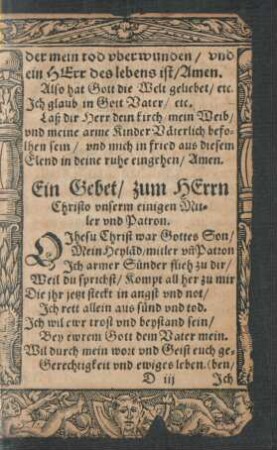 der mein tod vberwunden / vnd
ein HErr des lebens ist / Amen.
Also hat Gott die Welt geliebet / etc.
Ich glaub in Gott Vater / etc.
Laß dir Herr dein kirch / mein Weib /
vnd meine arme Kinder Väterlich befo-
lhen sein / vnd mich in fried aus diesem
Elend in deine ruhe eingehen / Amen.
Ein Gebet / zum HErrn
Christo vnserm einigen Mit-
ler vnd Patron.
O Jhesu Christ war Gottes Son /
Mein Heyläd / mitler vñ Patron
Ich armer Sünder flieh zu dir /
Weil du sprichst / Kompt all her zu mir
Die jhr jetzt steckt in angst vnd not /
Ich rett allein aus sünd vnd tod.
Ich wil ewr trost vnd beystand sein /
Bey ewrem Gott dem Vater mein.
Wil durch mein wort vnd Geist euch ge-
Gerechtigkeit vnd ewiges leben. (ben /
D iij Ich